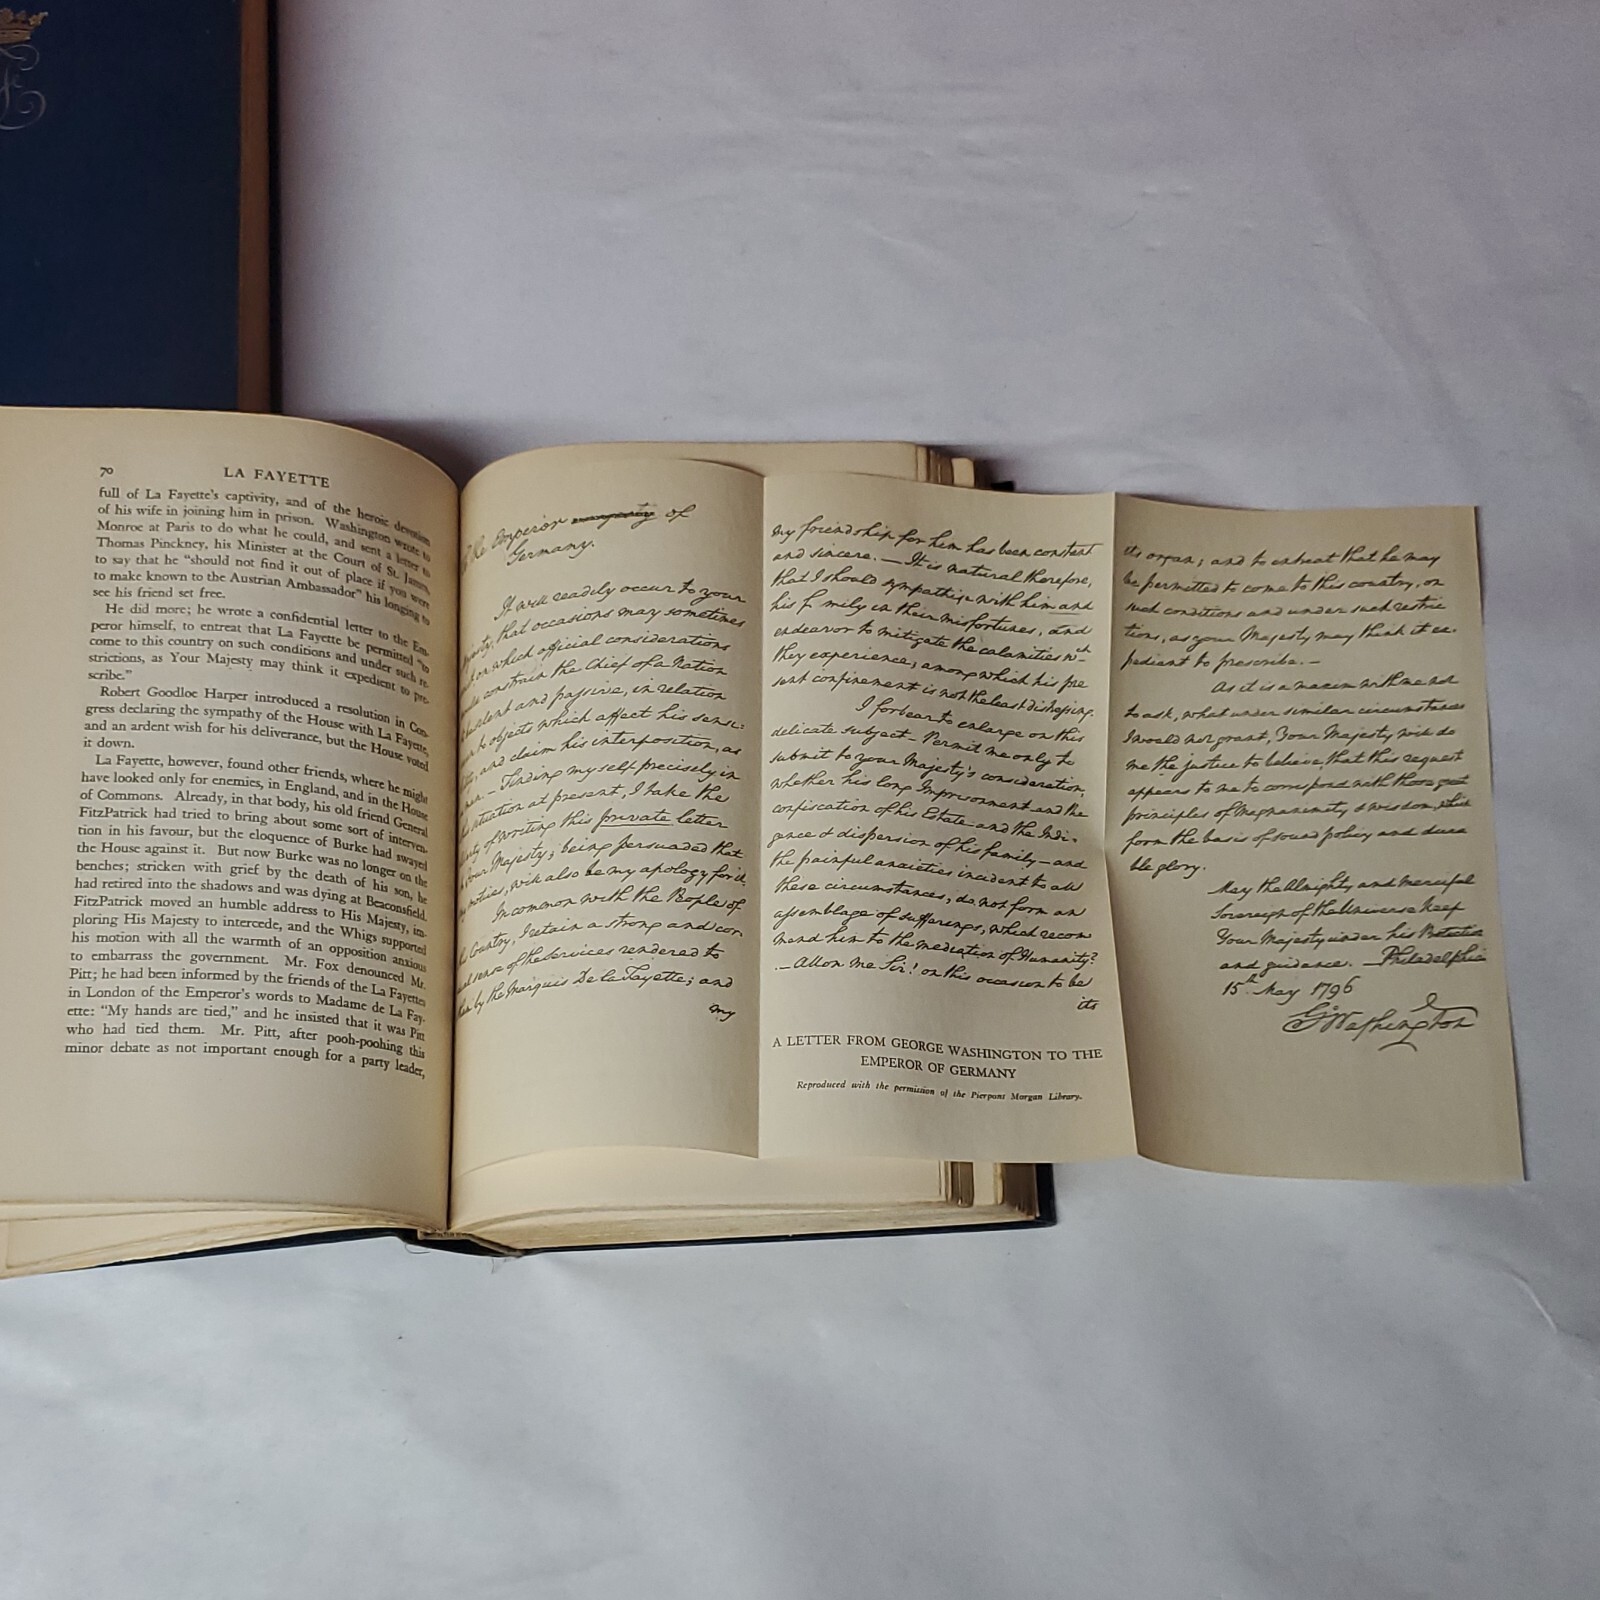 70 LA FAYETTE
full of La Fayette's captivity, and of the heroic devotion
of his wife in joining him in prison. Washington wrote to
Monroe at Paris to do what he could, and sent a letter to
Thomas Pinckney, his Minister at the Court of St. James,
to say that he "should not find it out of place if you were
to make known to the Austrian Ambassador" his longing to
see his friend set free.
He did more; he wrote a confidential letter to the Em-
peror himself, to entreat that La Fayette be permitted "to
come to this country on such conditions and under such re-
strictions, as Your Majesty may think it expedient to pre-
scribe."
Robert Goodloe Harper introduced a resolution in Con-
gress declaring the sympathy of the House with La Fayette,
and an ardent wish for his deliverance, but the House voted
it down.
La Fayette, however, found other friends, where he might
have looked only for enemies, in England, and in the House
of Commons. Already, in that body, his old friend General
FitzPatrick had tried to bring about some sort of interven-
tion in his favour, but the eloquence of Burke had swayed
the House against it. But now Burke was no longer on the
benches; stricken with grief by the death of his son, he
had retired into the shadows and was dying at Beaconsfield.
FitzPatrick moved an humble address to His Majesty, im-
ploring His Majesty to intercede, and the Whigs supported
his motion with all the warmth of an opposition anxious
to embarrass the government. Mr. Fox denounced Mr.
Pitt; he had been informed by the friends of the La Fayettes
in London of the Emperor's words to Madame de La Fay-
ette: "My hands are tied," and he insisted that it was Pitt
who had tied them. Mr. Pitt, after pooh-poohing this
minor debate as not important enough for a party leader,
the Emperor of
Germany.
It will readily occur to your
that occasions may sometimes
on which official considerations
constrain the Chief of a Nation
silent and passive, in relation
to objects which affect his sensi:
and claim his interposition, as
man. — Finding myself precisely in
situation at present, I take the
of writing this private letter
Your Majesty; being persuaded that
my motives, will also be my apology for it.
In common with the People of
Country, I retain a strong and cor
sense of the services rendered to
by the Marquis De la Fayette; and
my
my friendship for him has been constant
and sincere. — It is natural therefore,
that I should sympathise with him and
his f mily in their misfortunes, and
endeavor to mitigate the calamities wch
they experience; among which his pre
sent confinement is not the least distressing.
I forbear to enlarge on this
delicate subject — Permit me only to
submit to your Majesty's consideration,
whether his long Imprisonment and the
confiscation of his Estate — and the Indi-
gence & dispersion of his family — and
the painful anxieties incident to all
these circumstances, do not form an
assemblage of sufferings, which recom
mend him to the mediation of Humanity?
— Allow me Sir! on this occasion to be
its
A LETTER FROM GEORGE WASHINGTON TO THE
EMPEROR OF GERMANY
Reproduced with the permission of the Pierpont Morgan Library.
its organ; and to entreat that he may
be permitted to come to this country, on
such conditions and under such restric
tions, as your Majesty may think it ex-
pedient to prescribe. —
As it is a maxim with me not
to ask, what under similar circumstances
I would not grant, Your Majesty will do
me the justice to believe, that this request
appears to me to correspond with those great
principles of Magnanimity & wisdom, which
form the basis of sound policy and dura
ble glory.
May the Almighty and merciful
Sovereign of the Universe keep
Your Majesty under his Protection
and guidance. — Philadelphia
15th May 1796
G:Washington